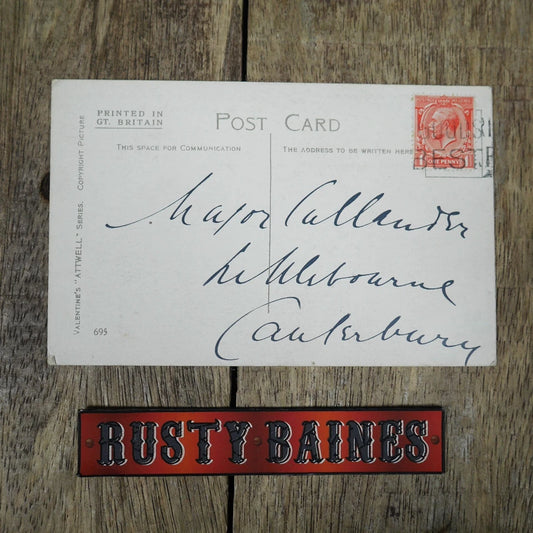 PRINTED IN
GT. BRITAIN
POST CARD
THIS SPACE FOR COMMUNICATION
THE ADDRESS TO BE WRITTEN HERE
VALENTINE'S "ATTWELL" SERIES. COPYRIGHT PICTURE
695
ONE PENNY
Major Callander
Littlebourne
Canterbury
RUSTY BAINES